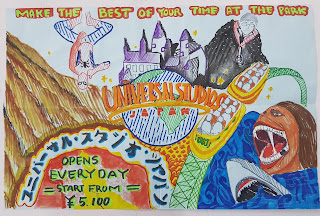 MAKE THE BEST OF YOUR TIME AT THE PARK
UNIVERSAL STUDIOS
JAPAN
ユニバーサル・スタジオ・ジャパン
OPENS
EVERYDAY
START FROM
¥5.100